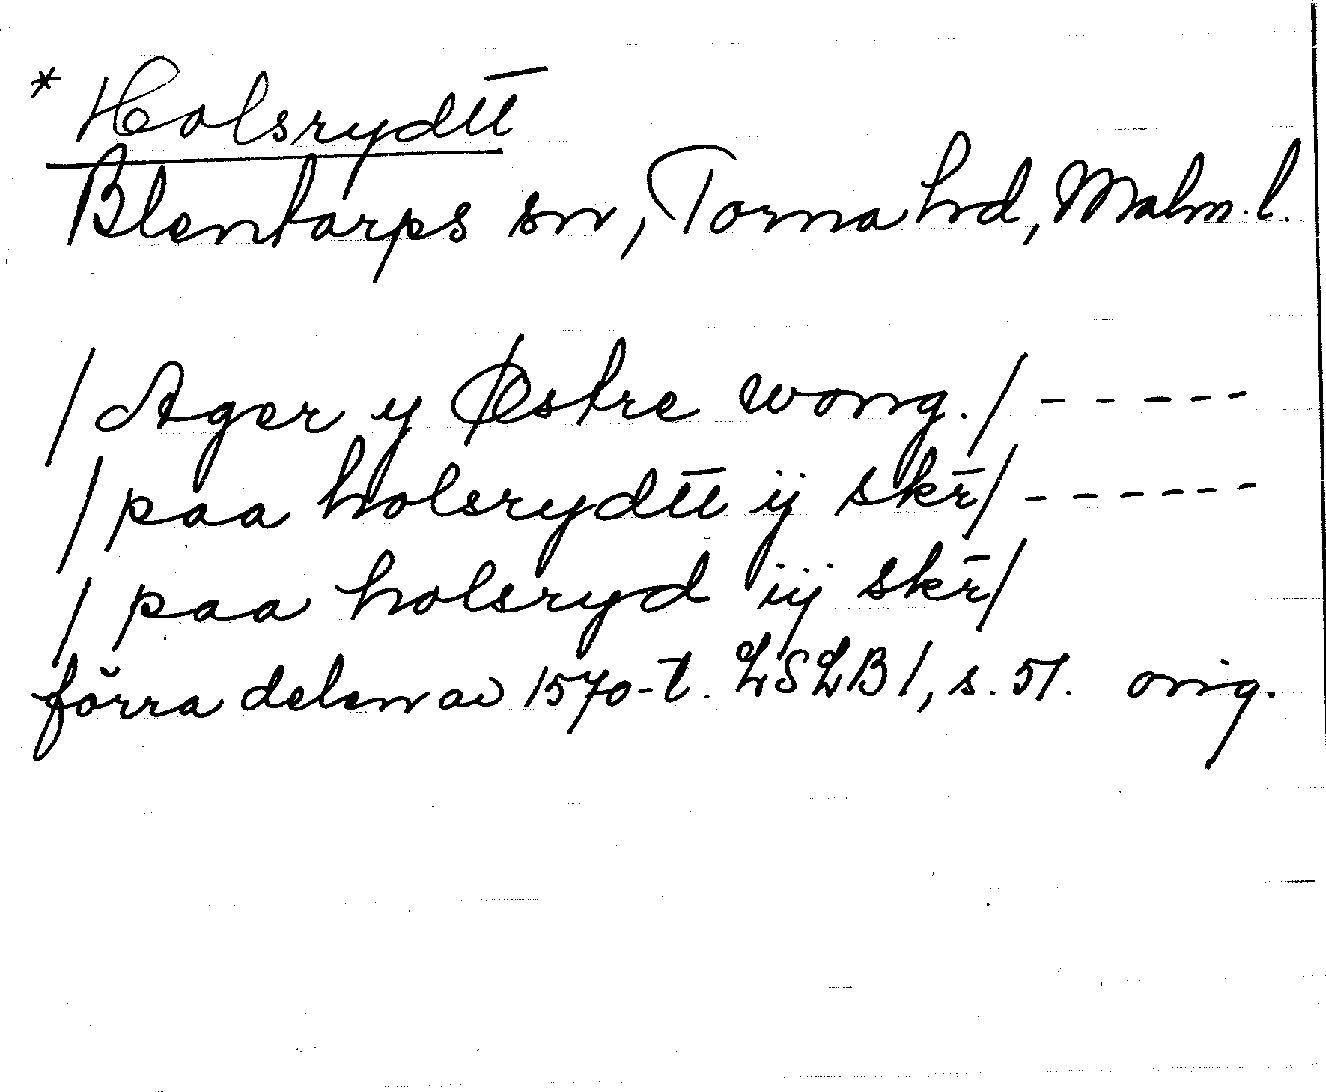 * Holsrydtt̅
Blentarps sn, Torna hrd, Malm.l.
/ Ager y Østre wong. / - - - - -
/ paa holsrydtt̅ ij skr̅ / - - - - - -
/ paa holsryd iij skr̅ /
förra delen av 1570-t. LSLB 1, s. 51. orig.